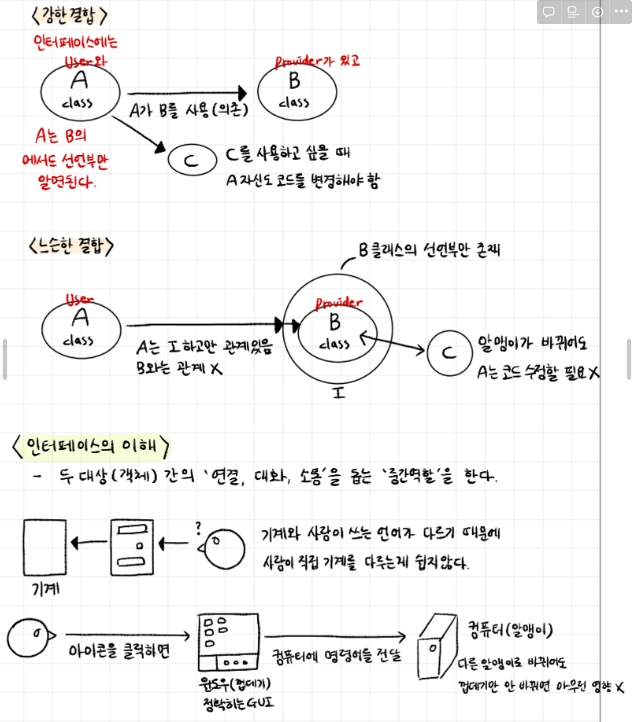 <강한 결합>
인터페이스에는
User와
Provider가 있고
A
class
B
class
A가 B를 사용(의존)
A는 B의
에서드 선언부만
알면된다.
C
C를 사용하고 싶을 때
A 자신도 코드를 변경해야 함
<느슨한 결합>
B클래스의 선언부만 존재
User
A
class
Provider
B
class
A는 I 하고만 관계있음
B와는 관계 X
C
알맹이가 바뀌어도
A는 코드 수정할 필요 X
I
<인터페이스의 이해>
- 두 대상(객체) 간의 '연결, 대화, 소통'을 돕는 '중간역할'을 한다.
?
기계와 사람이 쓰는 언어가 다르기 때문에
사람이 직접 기계를 다루는게 쉽지않다.
기계
아이콘을 클릭하면
컴퓨터에 명령어를 전달
컴퓨터(알맹이)
윈도우(껍데기)
다른 알맹이로 바뀌어도
껍데기만 안 바뀌면 아무런 영향 X